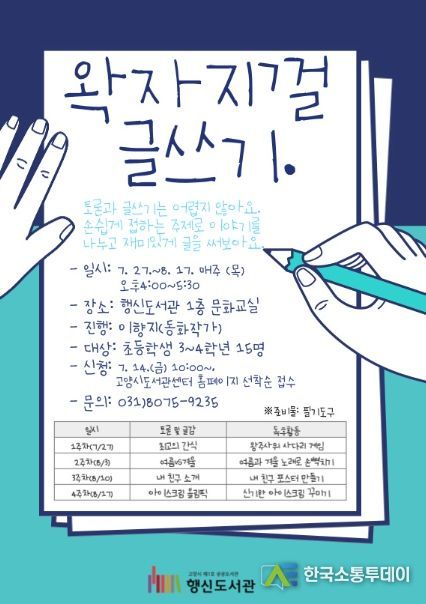 왁자지껄
글쓰기.
토론과 글쓰기는 어렵지 않아요.
손쉽게 접하는 주제로 이야기를
나누고 재미있게 글을 써보아요.
- 일시: 7. 27.~8. 17. 매주 (목)
오후4:00~5:30
- 장소: 행신도서관 1층 문화교실
- 진행: 이향지(동화작가)
- 대상: 초등학생 3~4학년 15명
- 신청: 7. 14.(금) 10:00~,
고양시도서관센터 홈페이지 선착순 접수
- 문의: 031)8075-9235
※준비물: 필기도구
일시 토론 및 글감 독후활동
1주차(7/27) 최고의 간식 왕주사위 사다리 게임
2주차(8/3) 여름vs겨울 여름과 겨울 노래로 손뼉치기
3주차(8/10) 내 친구 소개 내 친구 포스터 만들기
4주차(8/17) 아이스크림 올림픽 신기한 아이스크림 꾸미기
고양시 제1호 공공도서관
행신도서관
한국소통투데이